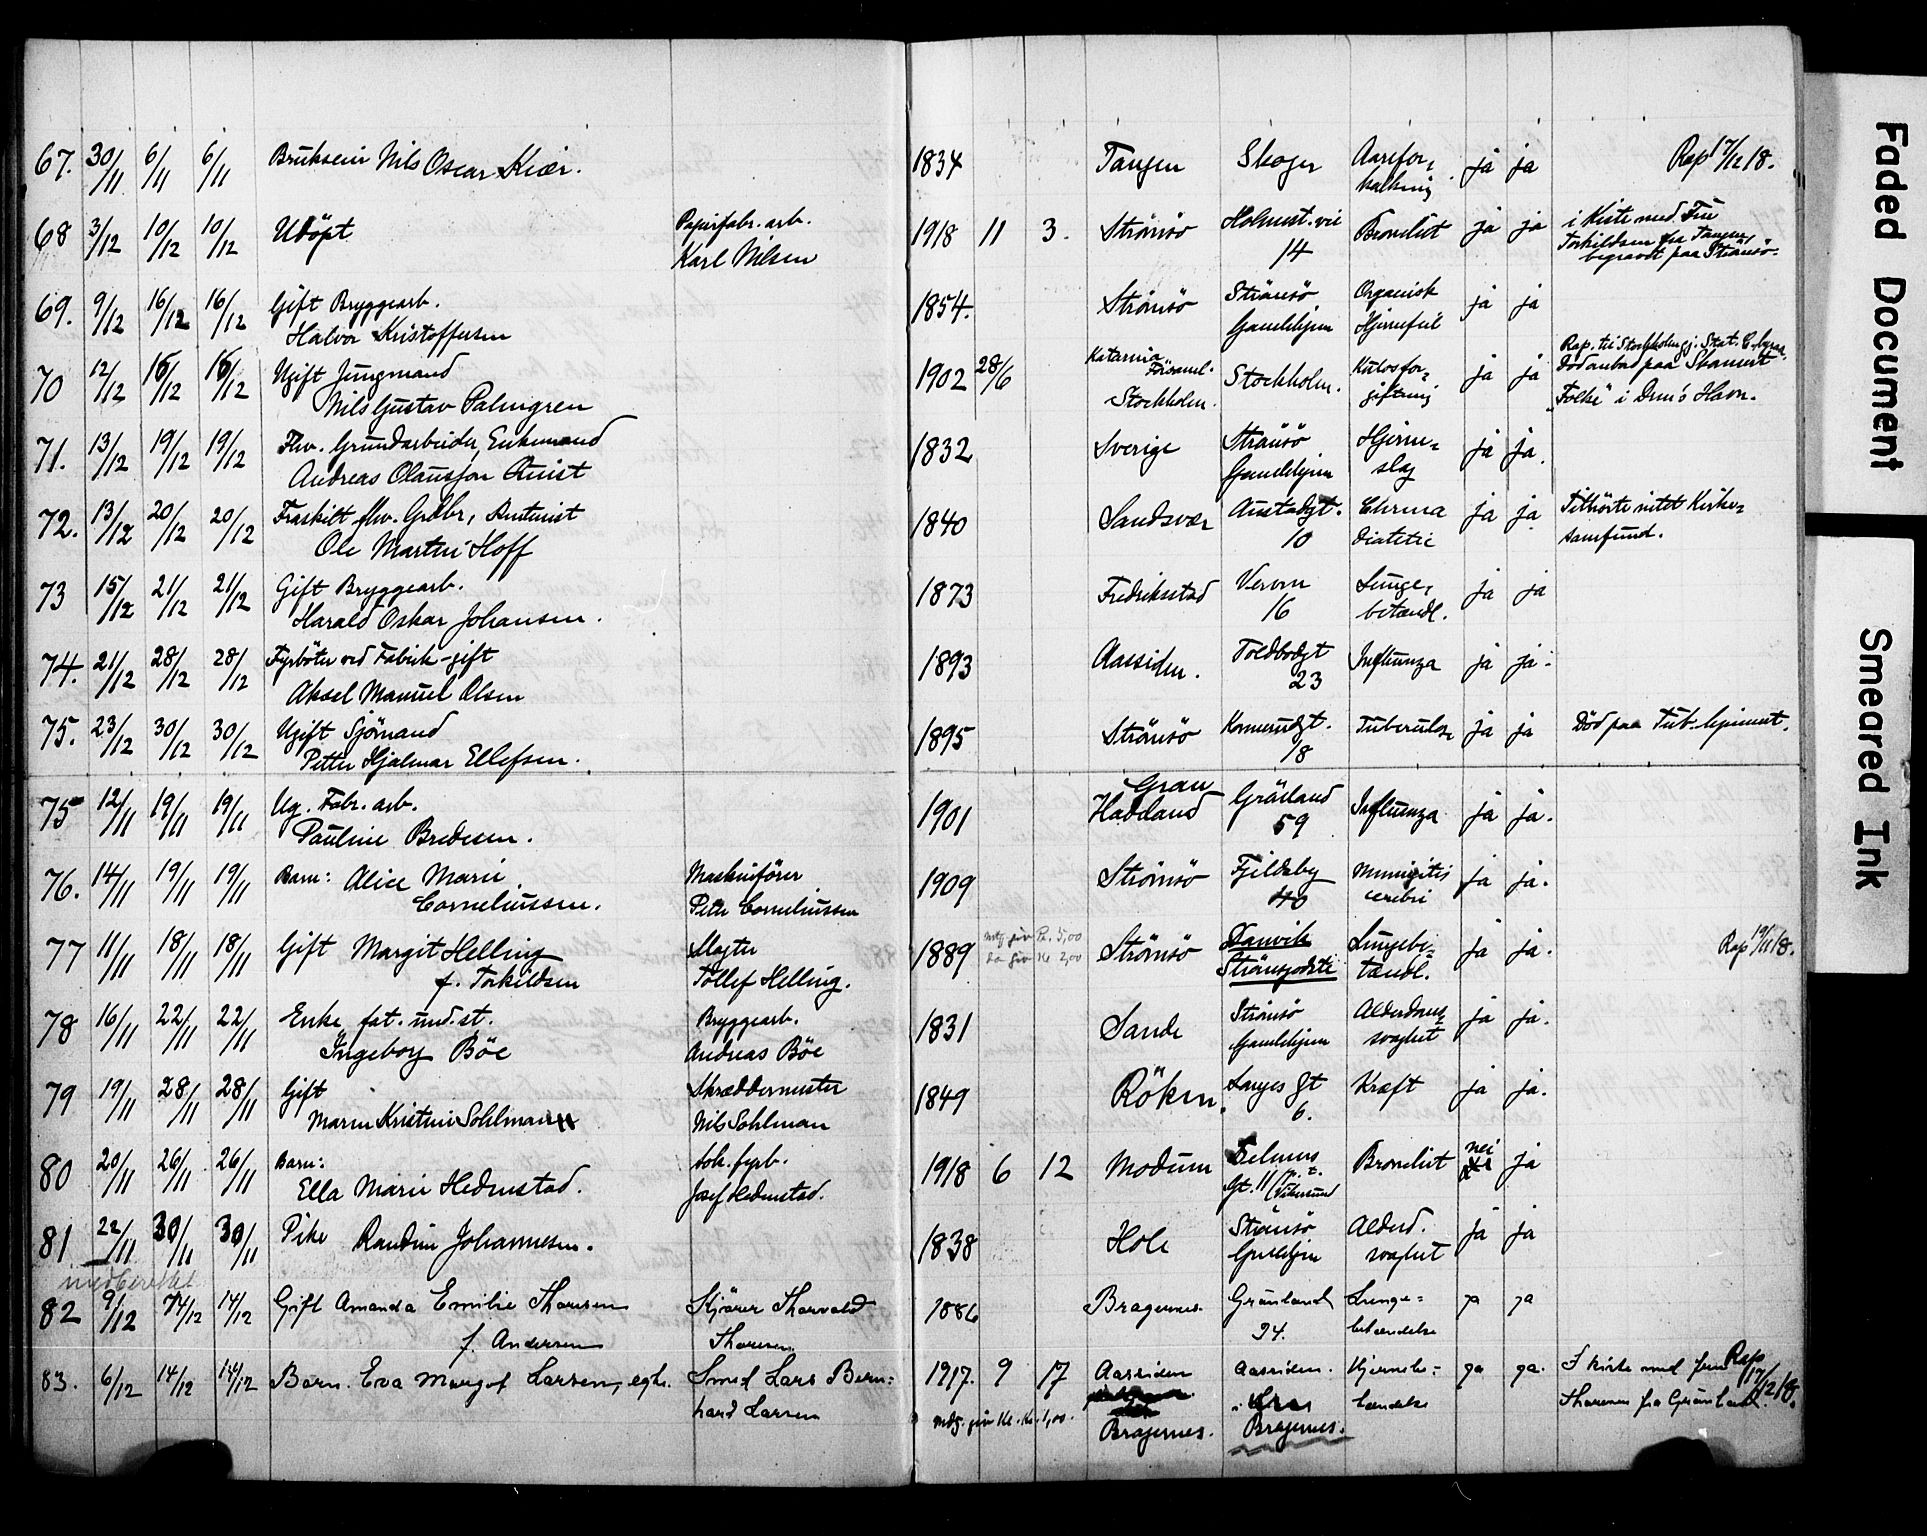 67. 30/11 6/11 6/11 Brukseier Nils Oscar Kiær. 1834 Tangen Skoger Aarefor- ja ja Rap 17/12 18.
kalkning
68 3/12 10/12 10/12 Udöpt Papirfabr. arb. 1918 11 3. Strömsö Holmest. vei Bronchit ja ja i Kiste med Fru
Karl Nilsen 14 Torkildsen fra Tangen
begravet paa Strömsö.
69. 9/12 16/12 16/12 Gift Bryggearb. 1854. Strömsö Strömsö Organisk ja ja
Halvor Kristoffersen Gamlehjem Hjertefeil
70 12/12 16/12 16/12 Ugift Jungmand 1902 28/6 Katarina Församl. Stockholm. Kulosfor- ja ja Rap. til Stockholm gj. Stat. C.byraa.
Nils Gustav Palmgren Stockholm. giftning Död ombord paa Skonnert
"Folke" i Drm's Havn.
71. 13/12 19/12 19/12 Fhv. Grundarbeider, Enkemand 1832 Sverige Strömsö Hjerne- ja ja.
Andreas Olausson Quist Gamlehjem slag
72. 13/12 20/12 20/12 Fraskilt fhv. Grdbr, Rentenist 1840 Sandsvær Austadgt. ja ja Tilhörte intet Kirke-
Ole Martin Hoff 10 samfund.
73 15/12 21/12 21/12 Gift Bryggearb. 1873 Fredrikstad Verven Lunge- ja ja
Harald Oskar Johansen. 16 betændl.
74. 21/12 28/12 28/12 Fyrböter ved Fabrik - gift 1893 Aassiden. Toldbodgt Influenza ja ja.
Aksel Manuel Olsen 23
75. 23/12 30/12 30/12 Ugift Sjömand 1895 Strömsö Konnerudgt. Tuberculose ja ja Död paa Tub. hjemmet.
Petter Hjalmar Ellefsen. 18
75 12/11 19/11 19/11 Ug. Fabr. arb. 1901 Gran Grönland Influenza ja ja.
Pauline Bredesen. Hadeland 59
76. 14/11 19/11 19/11 Barn: Alice Marie Maskinförer 1909 Strömsö Fjeldeby Meningitis ja ja.
Corneliussen. Peter Corneliussen 40 cerebri
77 11/11 18/11 18/11 Gift Margit Helling Slagter 1889 Strömsö Danvik Lungebe- ja ja. Rap 19/11 18.
f. Torkildsen Tollef Helling. Strömsgodste tændl.
78 16/11 22/11 22/11 Enke fat. und.st. Bryggearb. 1831 Sande Strömsö Alderdoms- ja ja.
Ingeborg Böe Andreas Böe Gamlehjem svaghet
79 19/11 28/11 28/11 Gift Skræddermester 1849 Röken. Langes Gt Kræft ja ja.
Maren Kristine Sohlman Nils Sohlman 6.
80 20/11 26/11 26/11 Barn: Lok. fyrb. 1918 6 12 Modum Telmers Bronchit nei ja
Ella Marie Hedenstad. Josef Hedenstad. Gt. 11 (Vikersund
81 22/11 30/11 30/11 Pike Randine Johannesen. 1838 Hole Strömsö Alderd. ja ja
Gamlehjem svaghet
82 9/12 14/12 14/12 Gift Amanda Emilie Thoresen Kjörer Thorvald 1886 Bragernes. Grönland Lunge- ja ja
f. Andersen Thoresen 94. betændelse
83. 6/12 14/12 14/12 Barn. Eva Margot Larsen, egte. Smed Lars Bern- 1917. 9 17 Aassiden Aassiden. Hjernebe- ja ja. I kiste med frue Rap 17/12 18.
hard Larsen tændelse Thoresen fra Grönland.
Bragernes. Bragernes.
Faded Document
Smeared Ink